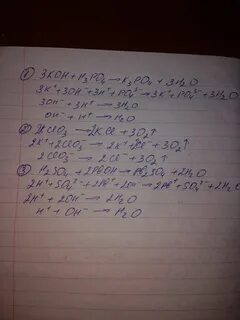 ① 3KOH + H₃PO₄ → K₃PO₄ + 3H₂O
3K⁺ + 3OH⁻ + 3H⁺ + PO₄³⁻ → 3K⁺ + PO₄³⁻ + 3H₂O
3OH⁻ + 3H⁺ → 3H₂O
OH⁻ + H⁺ → H₂O
② 2KClO₃ → 2KCl + 3O₂↑
2K⁺ + 2ClO₃⁻ → 2K⁺ + 2Cl⁻ + 3O₂↑
2ClO₃⁻ → 2Cl⁻ + 3O₂↑
③ H₂SO₄ + → + 2H₂O
2H⁺ + SO₄²⁻ + → + SO₄²⁻ + 2H₂O
2H⁺ + 2OH⁻ → 2H₂O
H⁺ + OH⁻ → H₂O